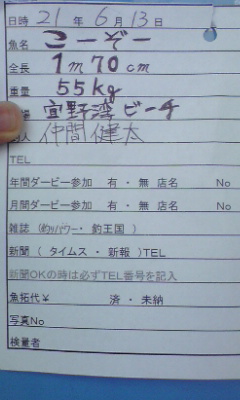 日時 21 年 6 月 13 日
魚名 こーぞー
全長 1m70cm
重量 55kg
宜野湾ビーチ
人 仲間健太
TEL
年間ダービー参加 有・無 店名 No
月間ダービー参加 有・無 店名 No
雑誌 (釣りパワー・釣王国)
新聞 (タイムス・新報)TEL
新聞OKの時は必ずTEL番号を記入
魚拓代¥ 済・未納
写真No
検量者